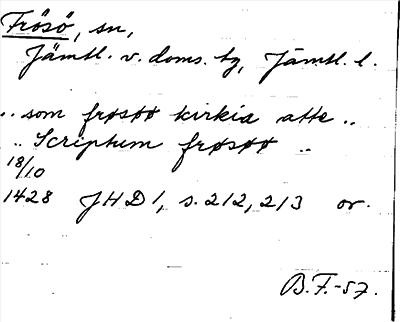 Frösö, sn,
Jämtl. v. doms. tg, Jämtl. l.
.. som frøsøø kirkia atte ..
.. Scriptum frøsøø ..
18/10
1428 JHD 1, s. 212, 213 or.
B.F.-57.